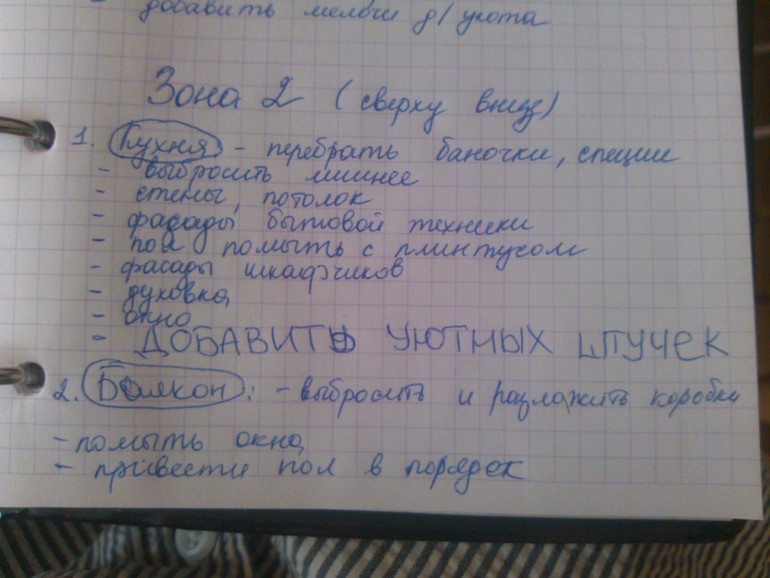 добавить мелочи д/уюта
Зона 2 (сверху вниз)
1. Кухня - перебрать баночки, специи
- выбросить лишнее
- стены, потолок
- фасады бытовой техники
- пол помыть с плинтусом
- фасады шкафчиков
- духовка
- окно
- ДОБАВИТЬ УЮТНЫХ ШТУЧЕК
2. Балкон: - выбросить и разложить коробки
- помыть окна
- привести пол в порядок